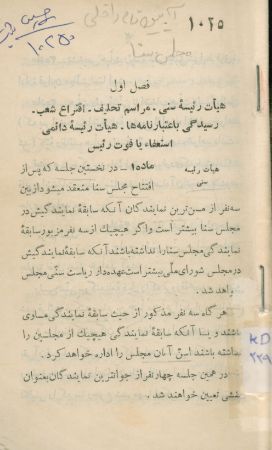 آئین‌نامه داخلی
۱۰۲۵
مجلس سنا
۱۰۲۵۰
فصل اول
هیأت رئیسهٔ سنی ـ مراسم تحلیف ـ اقتراع شعب ـ
رسیدگی باعتبارنامه‌ها ـ هیأت رئیسهٔ دائمی
استعفاء یا فوت رئیس
هیأت رئیسه
سنی
مادهٔ ۱ ـ در نخستین جلسه که پس از
افتتاح مجلس سنا منعقد میشود از بین
سه نفر از مسن‌ترین نمایندگان آنکه سابقهٔ نمایندگیش در
مجلس سنا بیشتر است و اگر هیچیک از سه نفر مزبور سابقهٔ
نمایندگی مجلس سنا را نداشته باشند آنکه سابقهٔ نمایندگیش
در مجلس شورای ملی بیشتر است عهده‌دار ریاست سنی مجلس
خواهد شد .
هر گاه سه نفر مذکور از حیث سابقهٔ نمایندگی مساوی
باشند و یا آنکه سابقهٔ نمایندگی هیچیک از مجلسین را
نداشته باشند اسن آنان مجلس را اداره خواهد کرد .
در همین جلسه چهار نفر از جوانترین نمایندگان بعنوان
منشی تعیین خواهند شد .
KD
۲۲۹